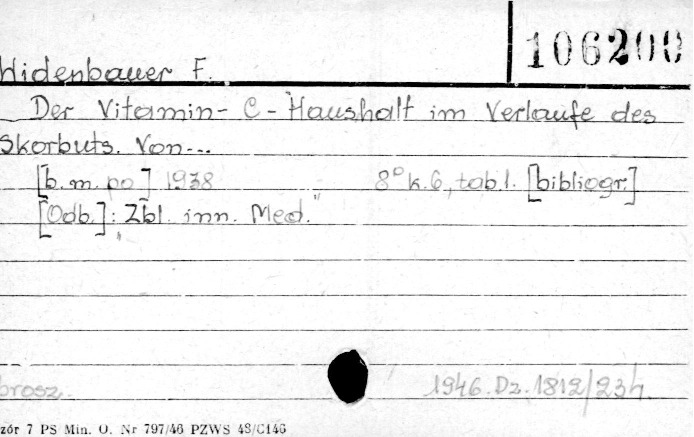 106200
Widenbauer F.
Der Vitamin-C-Haushalt im Verlaufe des
Skorbuts. Von...
[b.m. po] 1938 8° k.6, tab.1. [bibliogr.]
[Odb.]: "Zbl. inn. Med."
brosz. 1946. Dz. 1812/234.
zór 7 PS Min. O. Nr 797/46 PZWS 48/C146